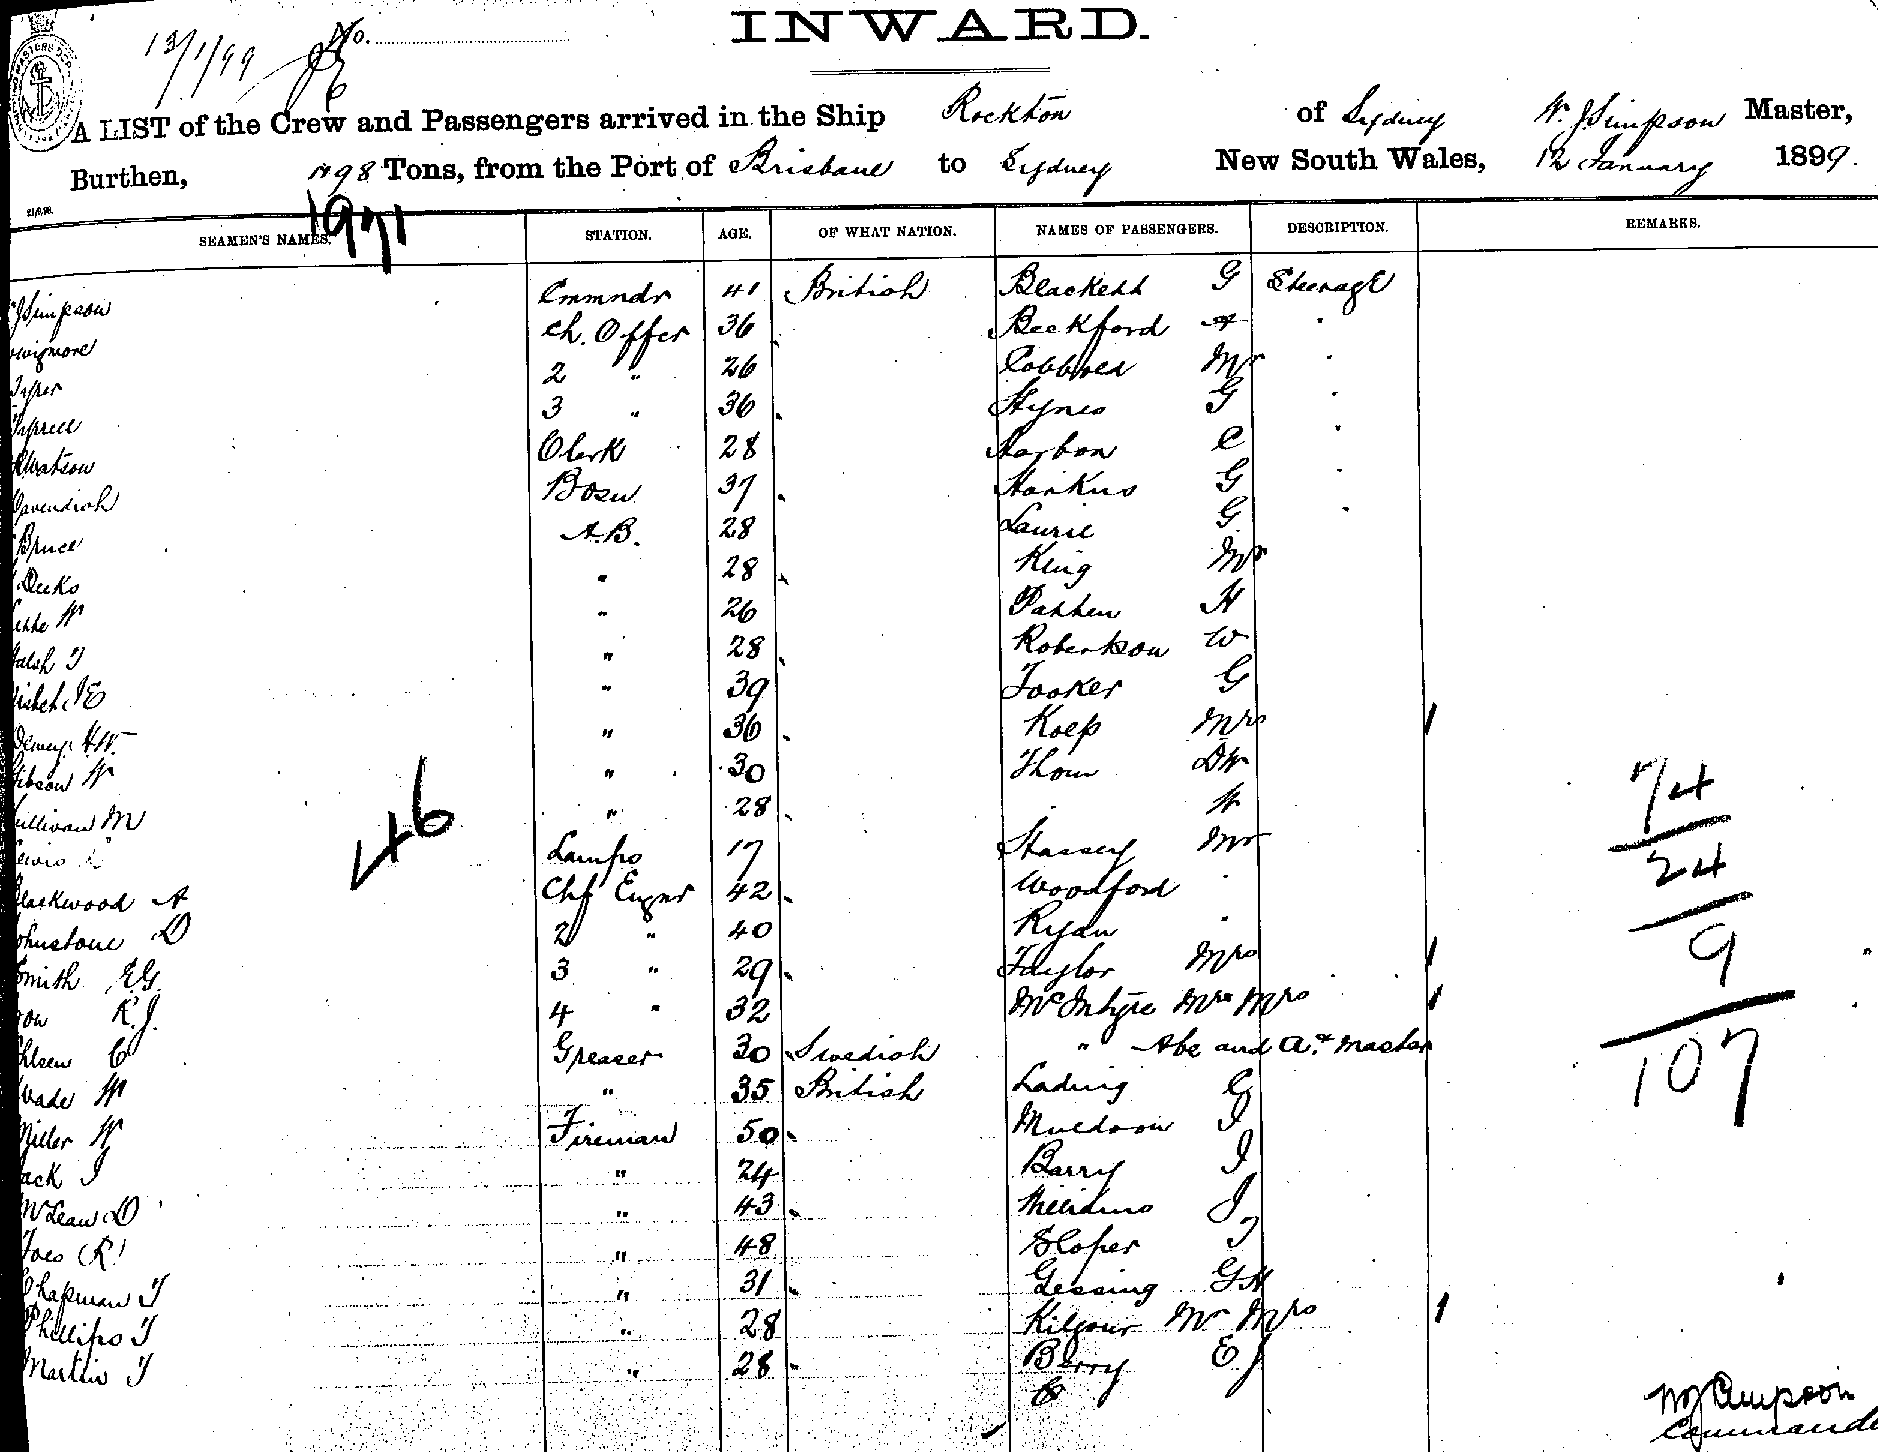 INWARD.
13/1/99 No.
A LIST of the Crew and Passengers arrived in the Ship Rockton of Sydney W. J Simpson Master,
Burthen, Tons, from the Port of Brisbane to Sydney New South Wales, 12 January 1899.
1971
SEAMEN'S NAMES. STATION. AGE. OF WHAT NATION. NAMES OF PASSENGERS. DESCRIPTION. REMARKS.
J Simpson Cmmndr 41 British Blackett G Steerage
wigmore Ch. Offcr 36 Beckford A "
Tyrer 2 " 26 Cobbold Mr "
Tyrrell 3 " 36 Hynes G "
Watson Clerk 28 Harbon C "
Cavendish Bosn 37 Harkus G "
Bruce A.B. 28 Laurie G "
Deeks " 28 King Mr
W " 26 Patten H
alsh T " 28 Robertson W
J E " 39 Tooker G
H W. " 36 Koep Mrs
ibson W " 30 Thom DW
ullivan M " 28 " W
ewis Lamps 17 Stassey Mr
lackwood A Chf Engnr 42 Woodford "
ohnstone D 2 " 40 Ryan "
Smith E.G. 3 " 29 Taylor Mrs
ow R.J. 4 " 32 McIntyre Mr Mrs
hlsen C Greaser 30 Swedish " Abe and At Master
wade W " 35 British Ladwig G
Miller W Fireman 50 Muldoon J
ack J " 24 Barry J
McLean D " 43 J
R " 48 Sloper T
Chapman T " 31 Gessing G H
Phillips T " 28 Kilgour Mr Mrs
Martin T " 28 Berry E. J
46
74
24
9
107
W J Simpson
Commande